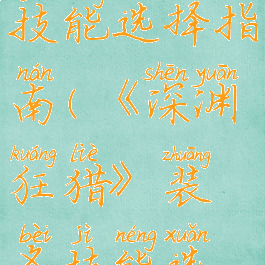 技能选择指
nán shēn yuān
南（《深渊
kuáng liè zhuāng
狂猎》装
bèi jì néng xuǎn
备技能选